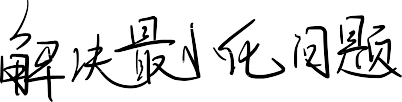 解决最小化问题